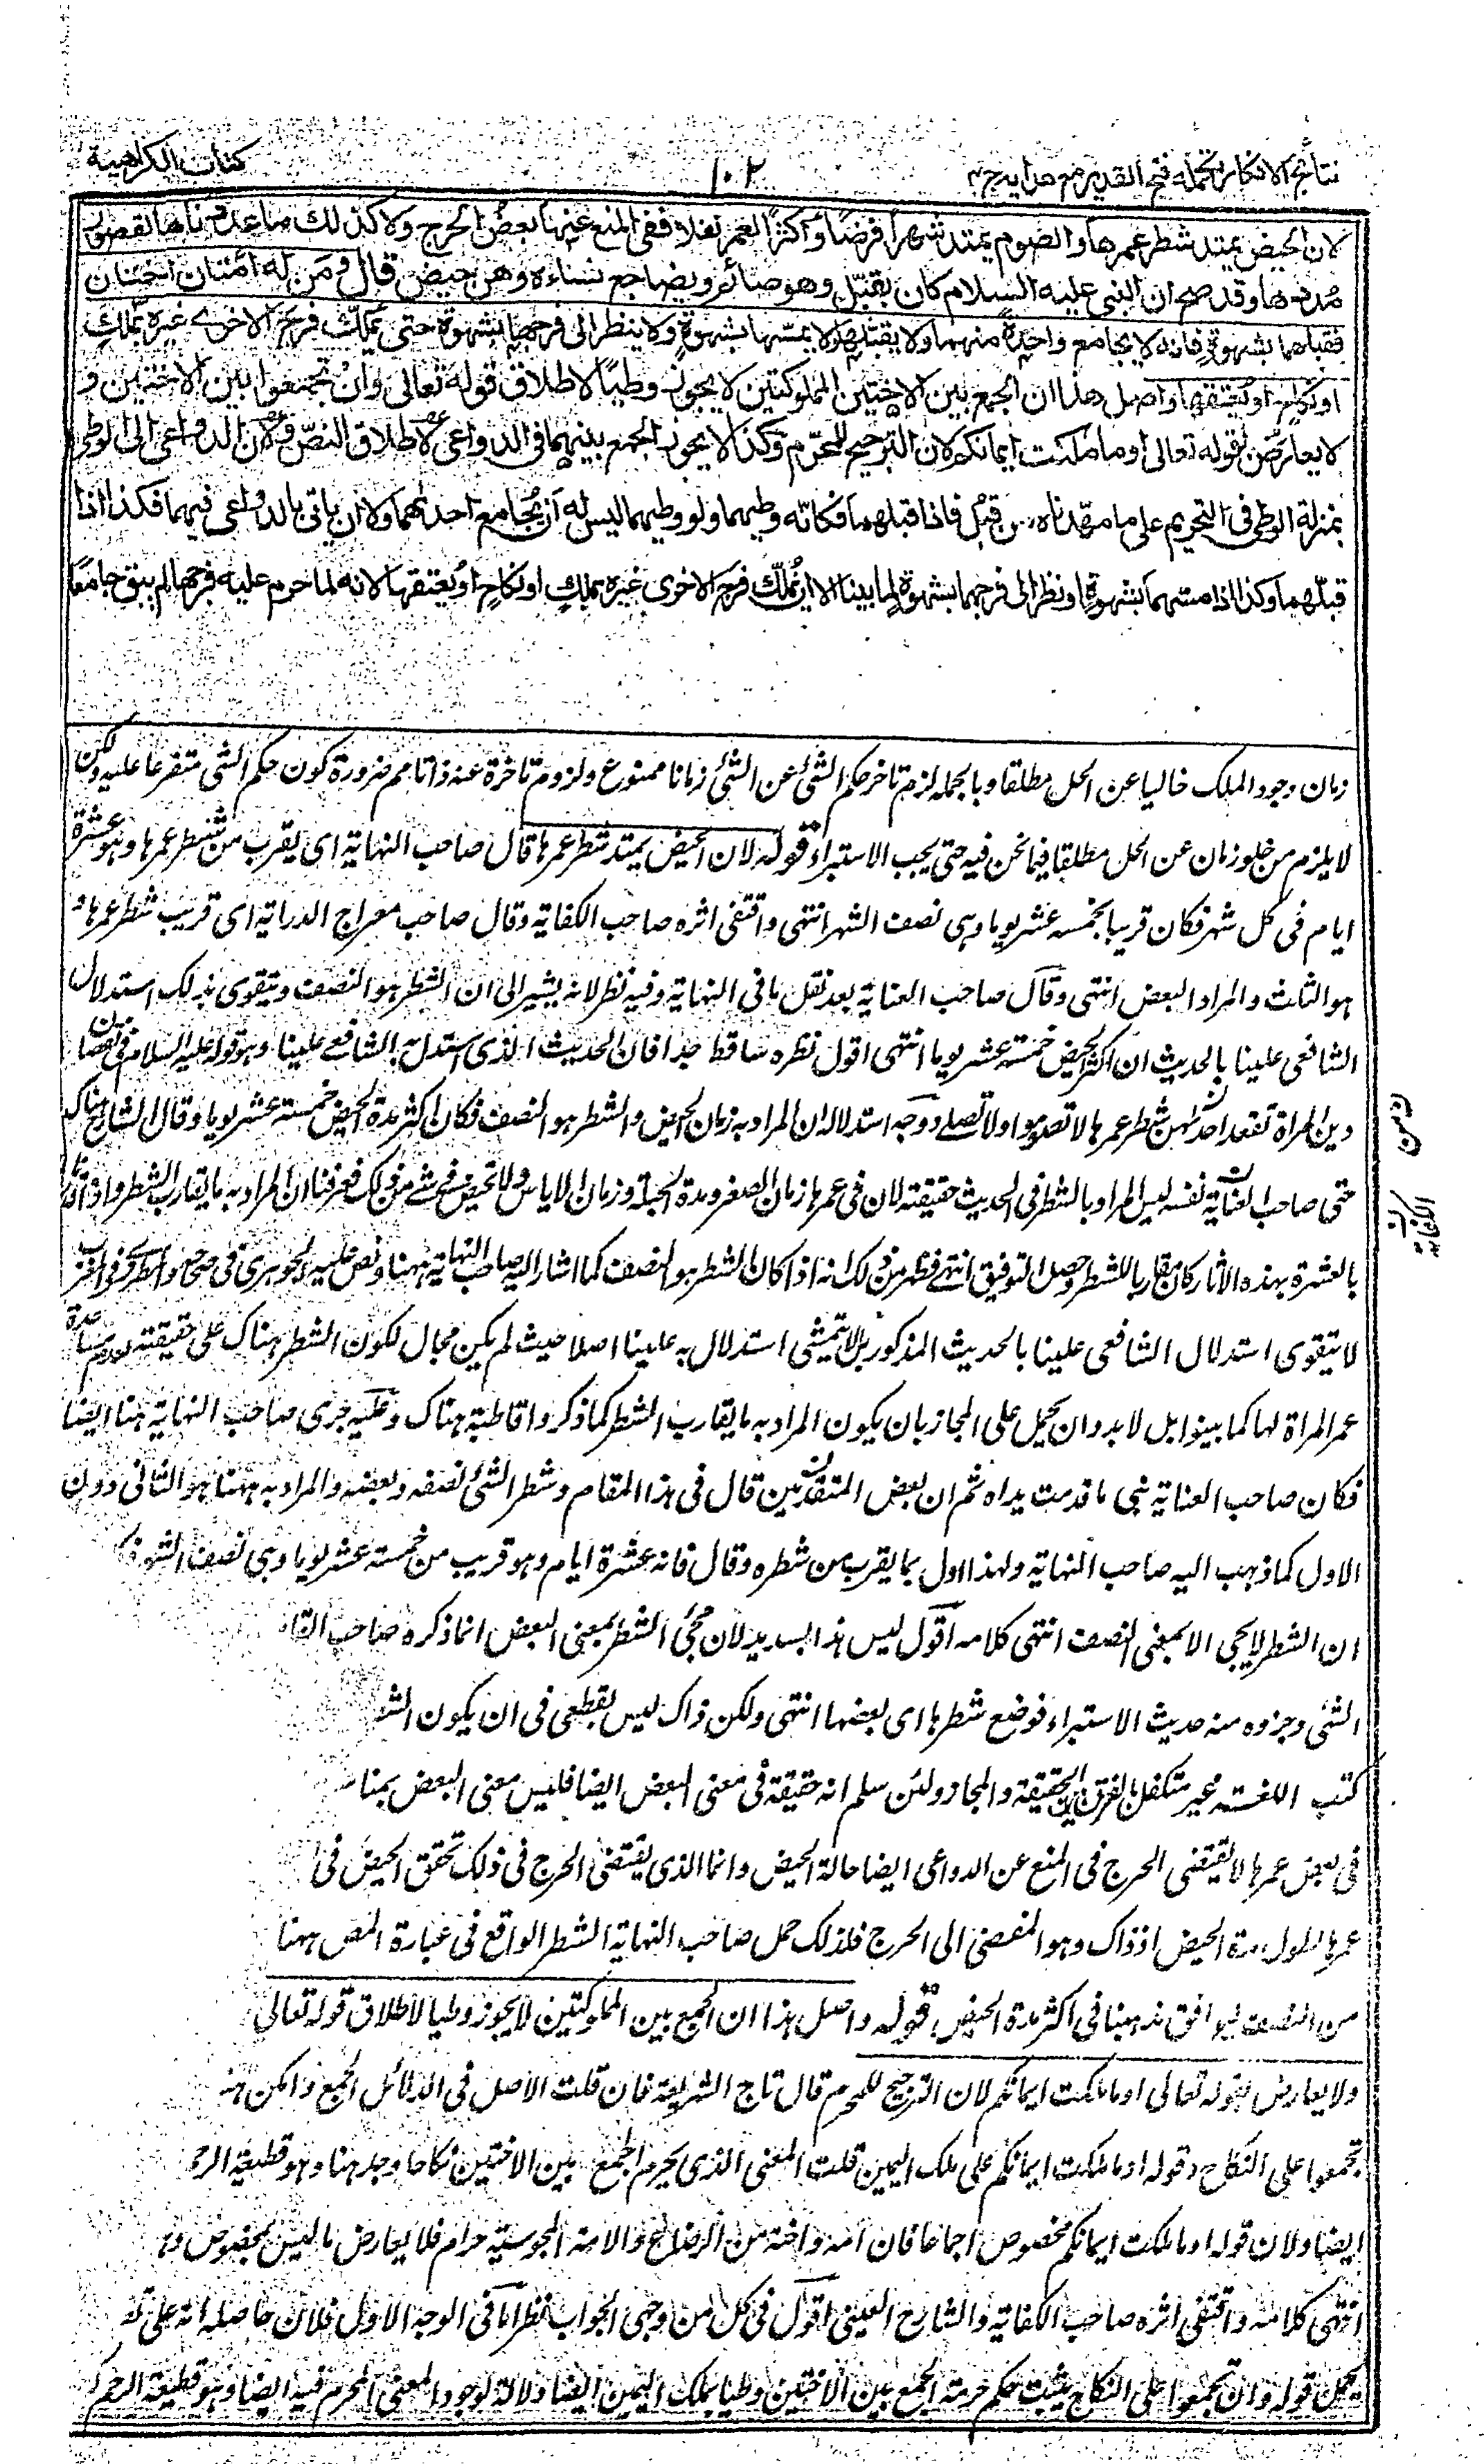 نتائج الافكار تكملة فتح القدير مع هدايه ج ٤
١٠٢
كتاب الكراهية
لان الحيض يمتد شطر عمرها والصوم يمتد شهرا فرضا واكثر العمر نفلا ففى المنع عنها بعض الحرج ولا كذلك ما عددناها لقصور
مددها وقد صح ان النبي عليه السلام كان يقبّل وهو صائم ويضاجع نساءه وهن حيض قال ومن له امتان اختان
فقبلهما بشهوة فانه لا يجامع واحدة منهما ولا يقبّلها ولا يمسّها بشهوة ولا ينظر الى فرجها بشهوة حتى يملّك فرج الاخرى غيره بملك
او نكاح او يعتقها واصل هذا ان الجمع بين الاختين المملوكتين لا يجوز وطيا لاطلاق قوله تعالى وان تجمعوا بين الاختين و
لا يعارض بقوله تعالى او ما ملكت ايمانكم لان الترجيح للمحرّم وكذا لا يجوز الجمع بينهما فى الدواعى لاطلاق النصّ ولان الدواعى الى الوطى
بمنزلة الوطى فى التحريم على ما مهّدناه من قبل فاذا قبلهما فكانّه وطيهما ولو وطيهما ليس له ان يجامع احدٰهما ولا ان ياتى بالدواعى فيهما فكذا اذا
قبّلهما وكذا اذا مسّهما بشهوة او نظر الى فرجهما بشهوة لما بينا الا ان يملّك فرج الاخرى غيره بملك او نكاح او يعتقها لانه لما حرم عليه فرجها لم يبق جامعا
زمان وجود الملك خاليا عن الحل مطلقا وبالجملة لزم تاخر حكم الشئ عن الشئ زمانا ممنوع ولزوم تاخره عنه ذاتا مم ضرورة كون حكم الشى متفرعا عليه ولكن
لا يلزم من خلو زمان عن الحل مطلقا فيما نحن فيه حتى يجب الاستبراء قوله لان الحيض يمتد شطر عمرها قال صاحب النهاية اى يقرب من شطر عمرها وهو عشرة
ايام فى كل شهر فكان قريبا بخمسة عشر يوما وهى نصف الشهر انتهى واقتفى اثره صاحب الكفاية وقال صاحب معراج الدراية اى قريب شطر عمرها و
هو الثلث والمراد البعض انتهى وقال صاحب العناية بعد نقل ما فى النهاية وفيه نظر لانه يشير الى ان الشطر هو النصف ويتقوى بذلك استدلال
الشافعى علينا بالحديث ان اكثر الحيض خمسة عشر يوما انتهى اقول نظره ساقط جدا فان الحديث الذى استدل به الشافعى علينا وهو قوله عليه السلام فى نقصان
دين المراة تقعد احداهن شطر عمرها لا تصوم ولا تصلى ووجه استدلاله ان المراد به زمان الحيض والشطر هو النصف فكان اكثر مدة الحيض خمسة عشر يوما وقال الشارح هناك
حتى صاحب العناية نفسه ليس المراد بالشطر فى الحديث حقيقته لان فى عمرها زمان الصغر ومدة الحبل وزمان الاياس ولا تحيض فى شى من ذلك فعرفنا ان المراد به ما يقارب الشطر واذا
بالعشرة بهذه الاثار كان مقاربا للشطر وحصل التوفيق انتهى فظهر من ذلك انه اذا كان الشطر هو النصف كما اشار اليه صاحب النهاية ههنا ونص عليه الجوهرى فى صحاحه والمطرزى فى المغرب
لا يتقوى استدلال الشافعى علينا بالحديث المذكور بل لا يتمشى استدلال به علينا اصلا حيث لم يكن مجال لكون الشطر هناك على حقيقته لعدم مساعدة
عمر المراة لها كما بينوا بل لا بد وان يحمل على المجاز بان يكون المراد به ما يقارب الشطر كما ذكروا قاطبة هناك وعليه جرى صاحب النهاية هنا ايضا
فكان صاحب العناية نسى ما قدمت يداه ثم ان بعض المتقدمين قال فى هذا المقام وشطر الشئ نصفه وبعضه والمراد به ههنا هو الثانى دون
الاول كما ذهب اليه صاحب النهاية ولهذا اول بما يقرب من شطره وقال فانه عشرة ايام وهو قريب من خمسة عشر يوما وهى نصف الشهر
ان الشطر لا يجى الا بمعنى النصف انتهى كلامه اقول ليس هذا بسديد لان مجئ الشطر بمعنى البعض انما ذكره صاحب
الشئ وجزوه منه حديث الاستبراء فوضع شطرها اى بعضها انتهى ولكن ذاك ليس بقطعى فى ان يكون
كتب اللغة غير متكفل بالفرق بين الحقيقة والمجاز ولئن سلم انه حقيقة فى معنى البعض ايضا فليس معنى البعض
فى بعض عمرها لا يقتضى الحرج فى المنع عن الدواعى ايضا حالة الحيض وانما الذى يقتضى الحرج فى ذلك تحقق الحيض فى
عمرها لطول مدة الحيض اذ ذاك وهو المفضى الى الحرج فلذلك حمل صاحب النهاية الشطر الواقع فى عبارة المص ههنا
من النصف ليوافق مذهبنا فى اكثر مدة الحيض قوله واصل هذا ان الجمع بين المملوكتين لا يجوز وطيا لاطلاق قوله تعالى
ولا يعارض بقوله تعالى او ما ملكت ايمانكم لان الترجيح للمحرم قال تاج الشريعة فان قلت الاصل فى الدلائل الجمع وامكن
تجمعوا على النكاح وقوله او ما ملكت ايمانكم على ملك اليمين قلت المعنى الذى يحرم الجمع بين الاختين نكاحا وجد هنا وهو قطيعة
ايضا ولان قوله او ما ملكت ايمانكم مخصوص اجماعا فان امه واخته من الرضاع والامة المجوسية حرام فلا يعارض ما ليس بمخصوص
انتهى كلامه واقتفى اثره صاحب الكفاية والشارح العينى اقول فى كل من وجهى الجواب نظر اما فى الوجه الاول فلان حاصله انه على
يحمل قوله وان تجمعوا على النكاح يثبت حكم حرمة الجمع بين الاختين وطيا بملك اليمين ايضا دلالة لوجود المعنى المحرم فيه ايضا وهو قطيعة الرحم